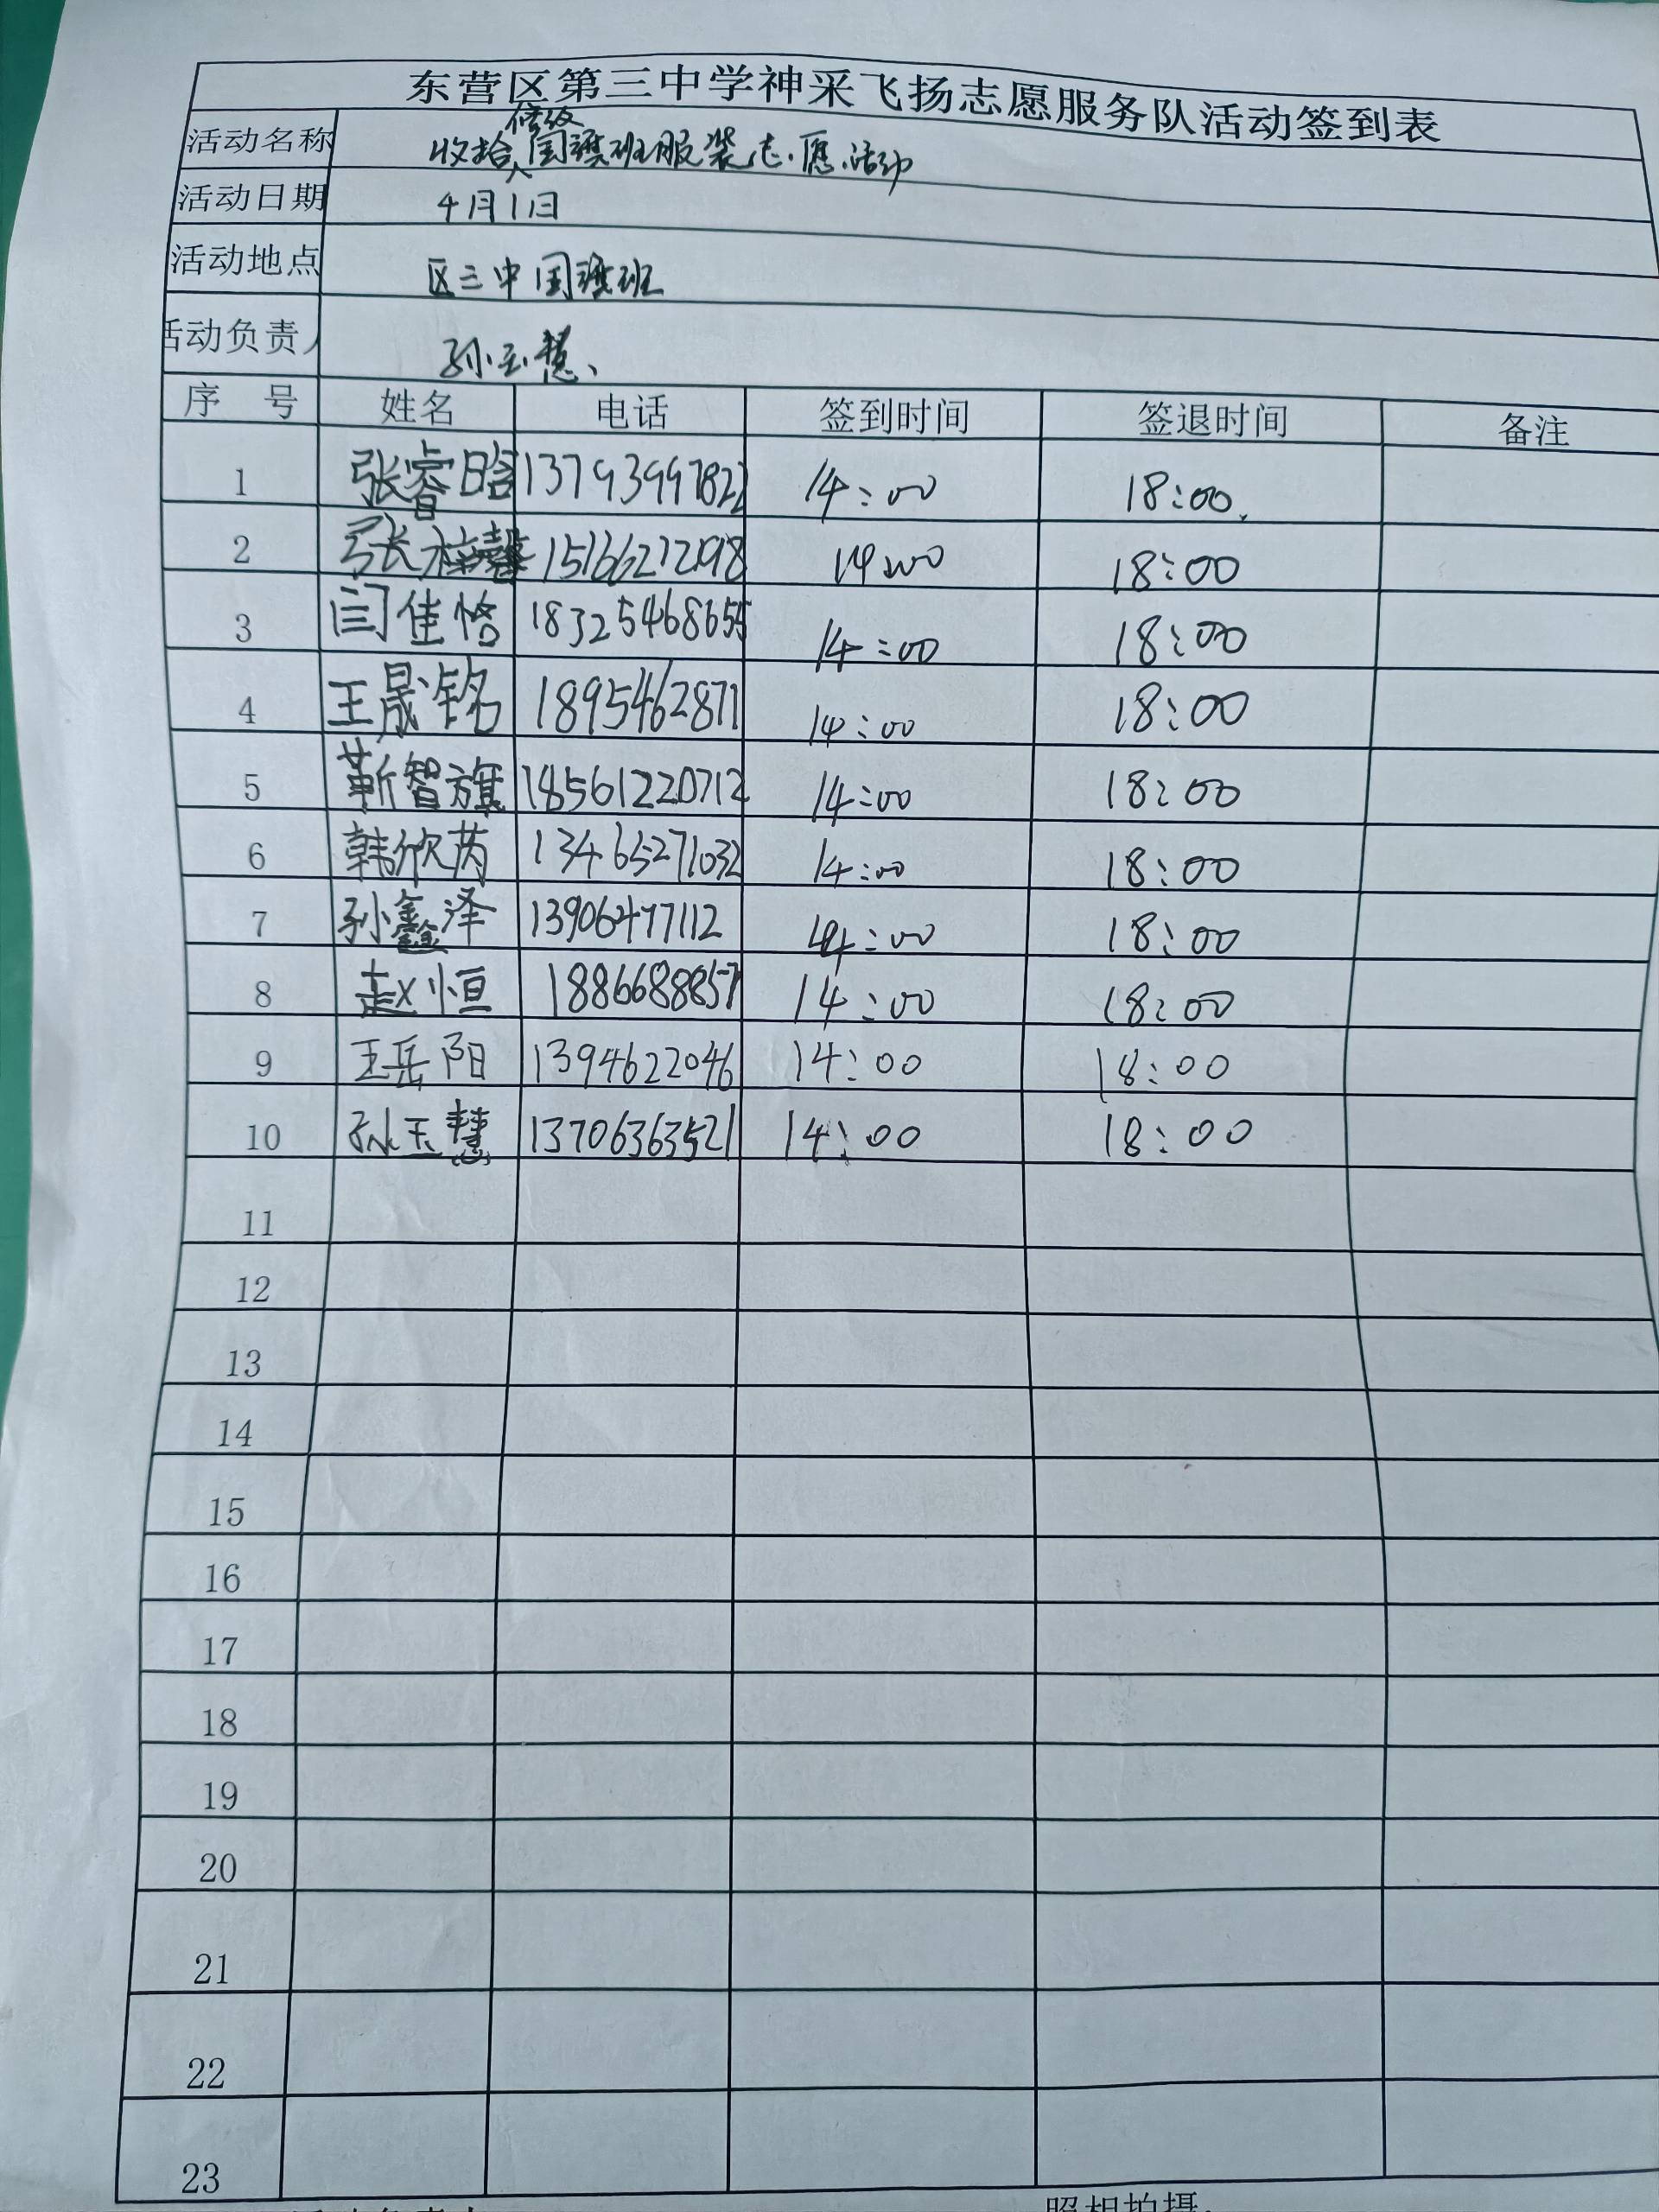 东营区第三中学神采飞扬志愿服务队活动签到表
活动名称 收拾修级国旗班服装志愿活动
活动日期 4月1日
活动地点 区三中国旗班
活动负责人 孙玉慧、
序 号 姓名 电话 签到时间 签退时间 备注
1 张睿晗 13793997822 14:00 18:00
2 张梓馨 15166272098 14:00 18:00
3 闫佳恪 18325468655 14:00 18:00
4 王晟铭 1895462871 14:00 18:00
5 靳智旗 18561220712 14:00 18:00
6 韩欣芮 13465271032 14:00 18:00
7 孙鑫泽 13906477112 14:00 18:00
8 赵恒 1886688857 14:00 18:00
9 王岳阳 1394622046 14:00 18:00
10 孙玉慧 13706363521 14:00 18:00
11
12
13
14
15
16
17
18
19
20
21
22
23
照相拍摄: